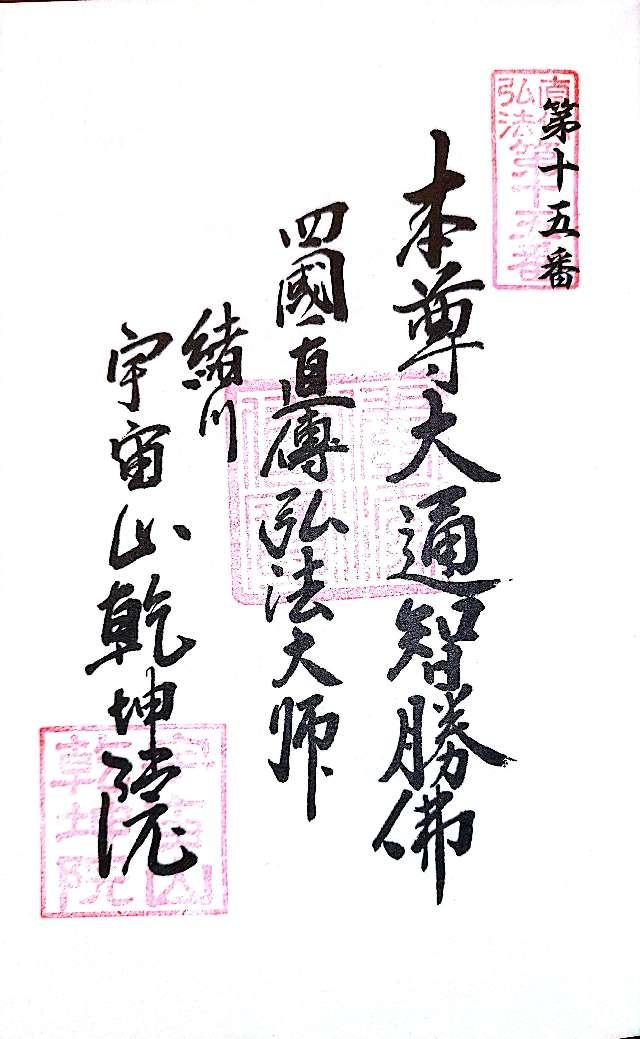 第十五番
直傳
弘法
第十五番
本尊大通智勝佛
四國直傳弘法大师
緒川
宇宙山乾坤院
宇宙山
乾坤院